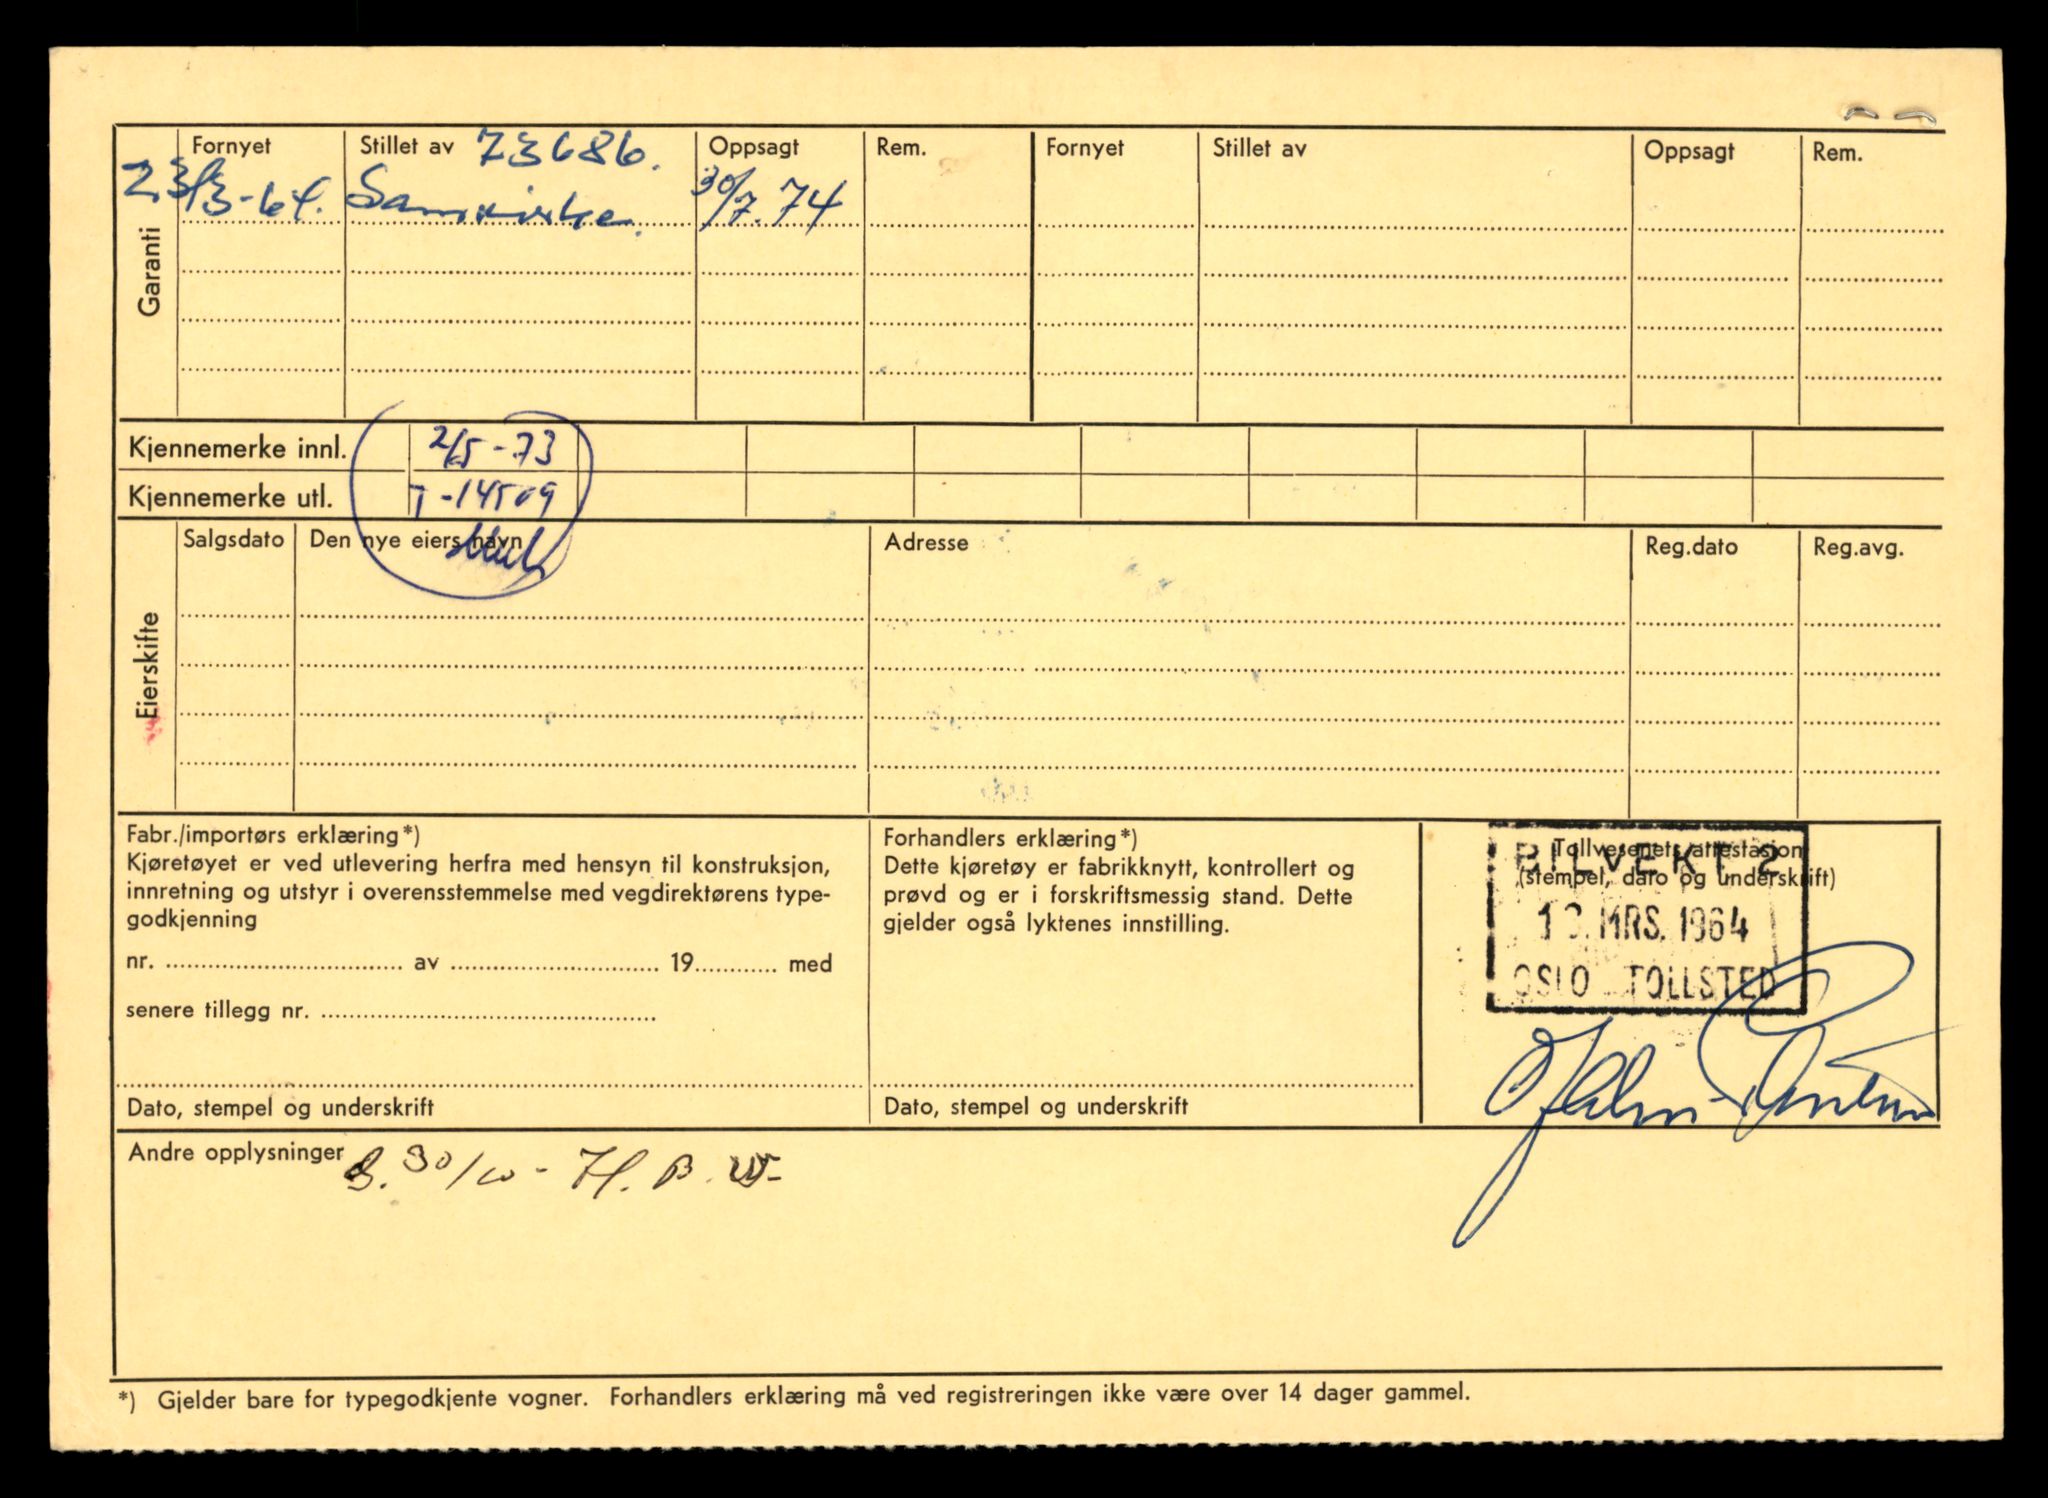 Garanti
Fornyet Stillet av 73686. Oppsagt Rem. Fornyet Stillet av Oppsagt Rem.
23/3-64. Samvirke. 30/7.74
Kjennemerke innl. 2/5-73
Kjennemerke utl. T-14509
Eierskifte
Salgsdato Den nye eiers navn Adresse Reg.dato Reg.avg.
Fabr./importørs erklæring*)
Kjøretøyet er ved utlevering herfra med hensyn til konstruksjon,
innretning og utstyr i overensstemmelse med vegdirektørens type-
godkjenning
nr. av 19 med
senere tillegg nr.
Dato, stempel og underskrift
Forhandlers erklæring*)
Dette kjøretøy er fabrikknytt, kontrollert og
prøvd og er i forskriftsmessig stand. Dette
gjelder også lyktenes innstilling.
Dato, stempel og underskrift
Tollvesenets attestasjon
(stempel, dato og underskrift)
BILVEKT 2
MRS. 1964
OSLO TOLLSTED
Andre opplysninger
*) Gjelder bare for typegodkjente vogner. Forhandlers erklæring må ved registreringen ikke være over 14 dager gammel.